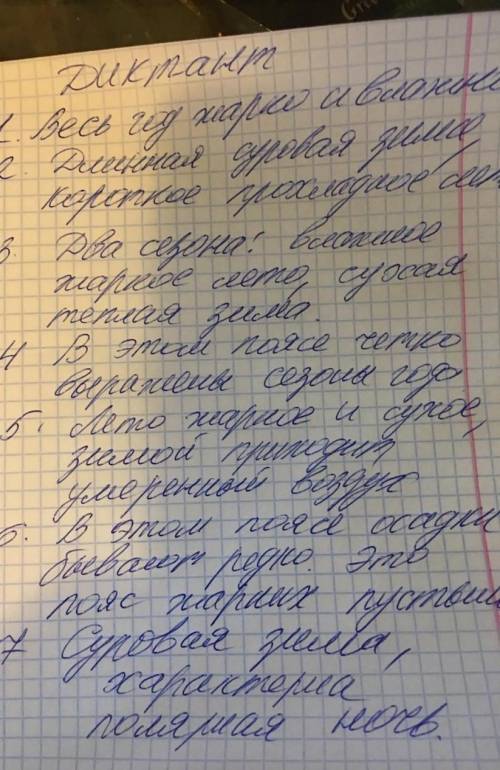 Диктант
1. Весь год жарко и влажно
2. Длинная суровая зима,
короткое прохладное лет
3. Два сезона: влажное
жаркое лето, сухая
теплая зима.
4 В этом поясе четко
выражены сезоны года
5. Лето жаркое и сухое,
зимой приходит
умеренный воздух
6. В этом поясе осадки
бывают редко. Это
пояс жарких пустынь
7 Суровая зима,
характерна
полярная ночь.